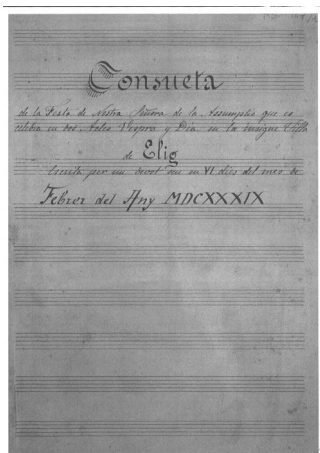 Consueta
de la Festa de Nostra Señora de la Assumptio que es
celebra en dos Actes Vespra y Dia en la insigne
de Elig
Escrita per un devot seu en VI dies del mes de
Febrer del Any MDCXXXIX